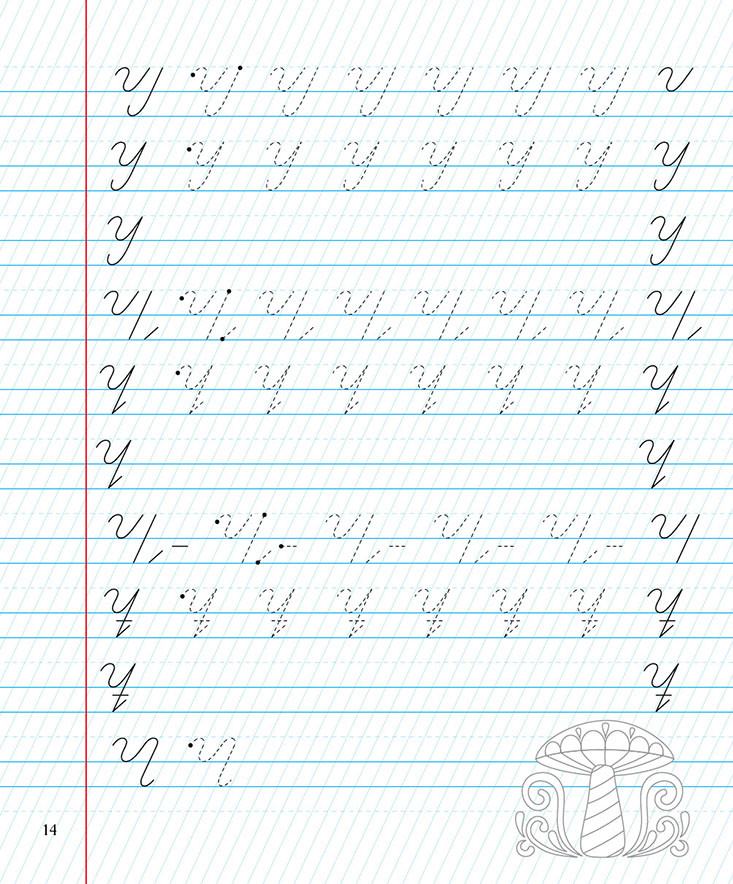 У У У У У У У У
У У
Ү Ү Ү Ү Ү Ү Ү Ү
Ү Ү
Ұ Ұ Ұ Ұ Ұ Ұ Ұ Ұ
Ұ Ұ
14